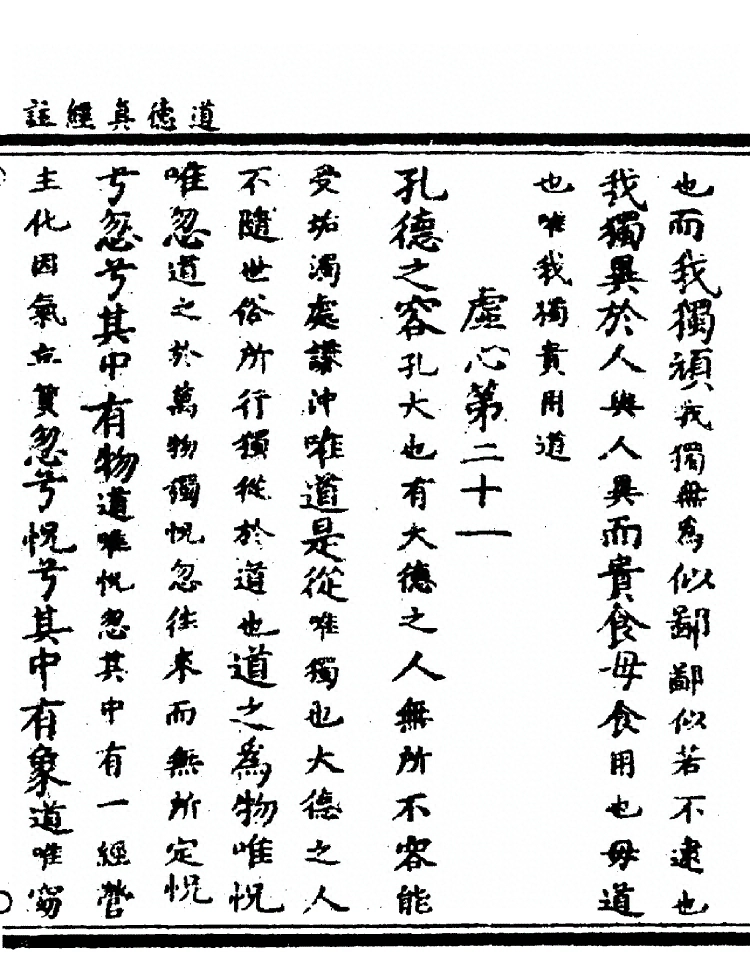 道德真經註
也而我獨頑我獨無為似鄙鄙似若不逮也
我獨異於人與人異而貴食母食用也母道
也唯我獨貴用道
虛心第二十一
孔德之容孔大也有大德之人無所不容能
受垢濁處謙沖唯道是從唯獨也大德之人
不隨世俗所行獨從於道也道之為物唯怳
唯忽道之於萬物獨怳忽往來而無所定怳
兮忽兮其中有物道唯怳忽其中有一經營
主化因氣立質忽兮怳兮其中有象道唯窈